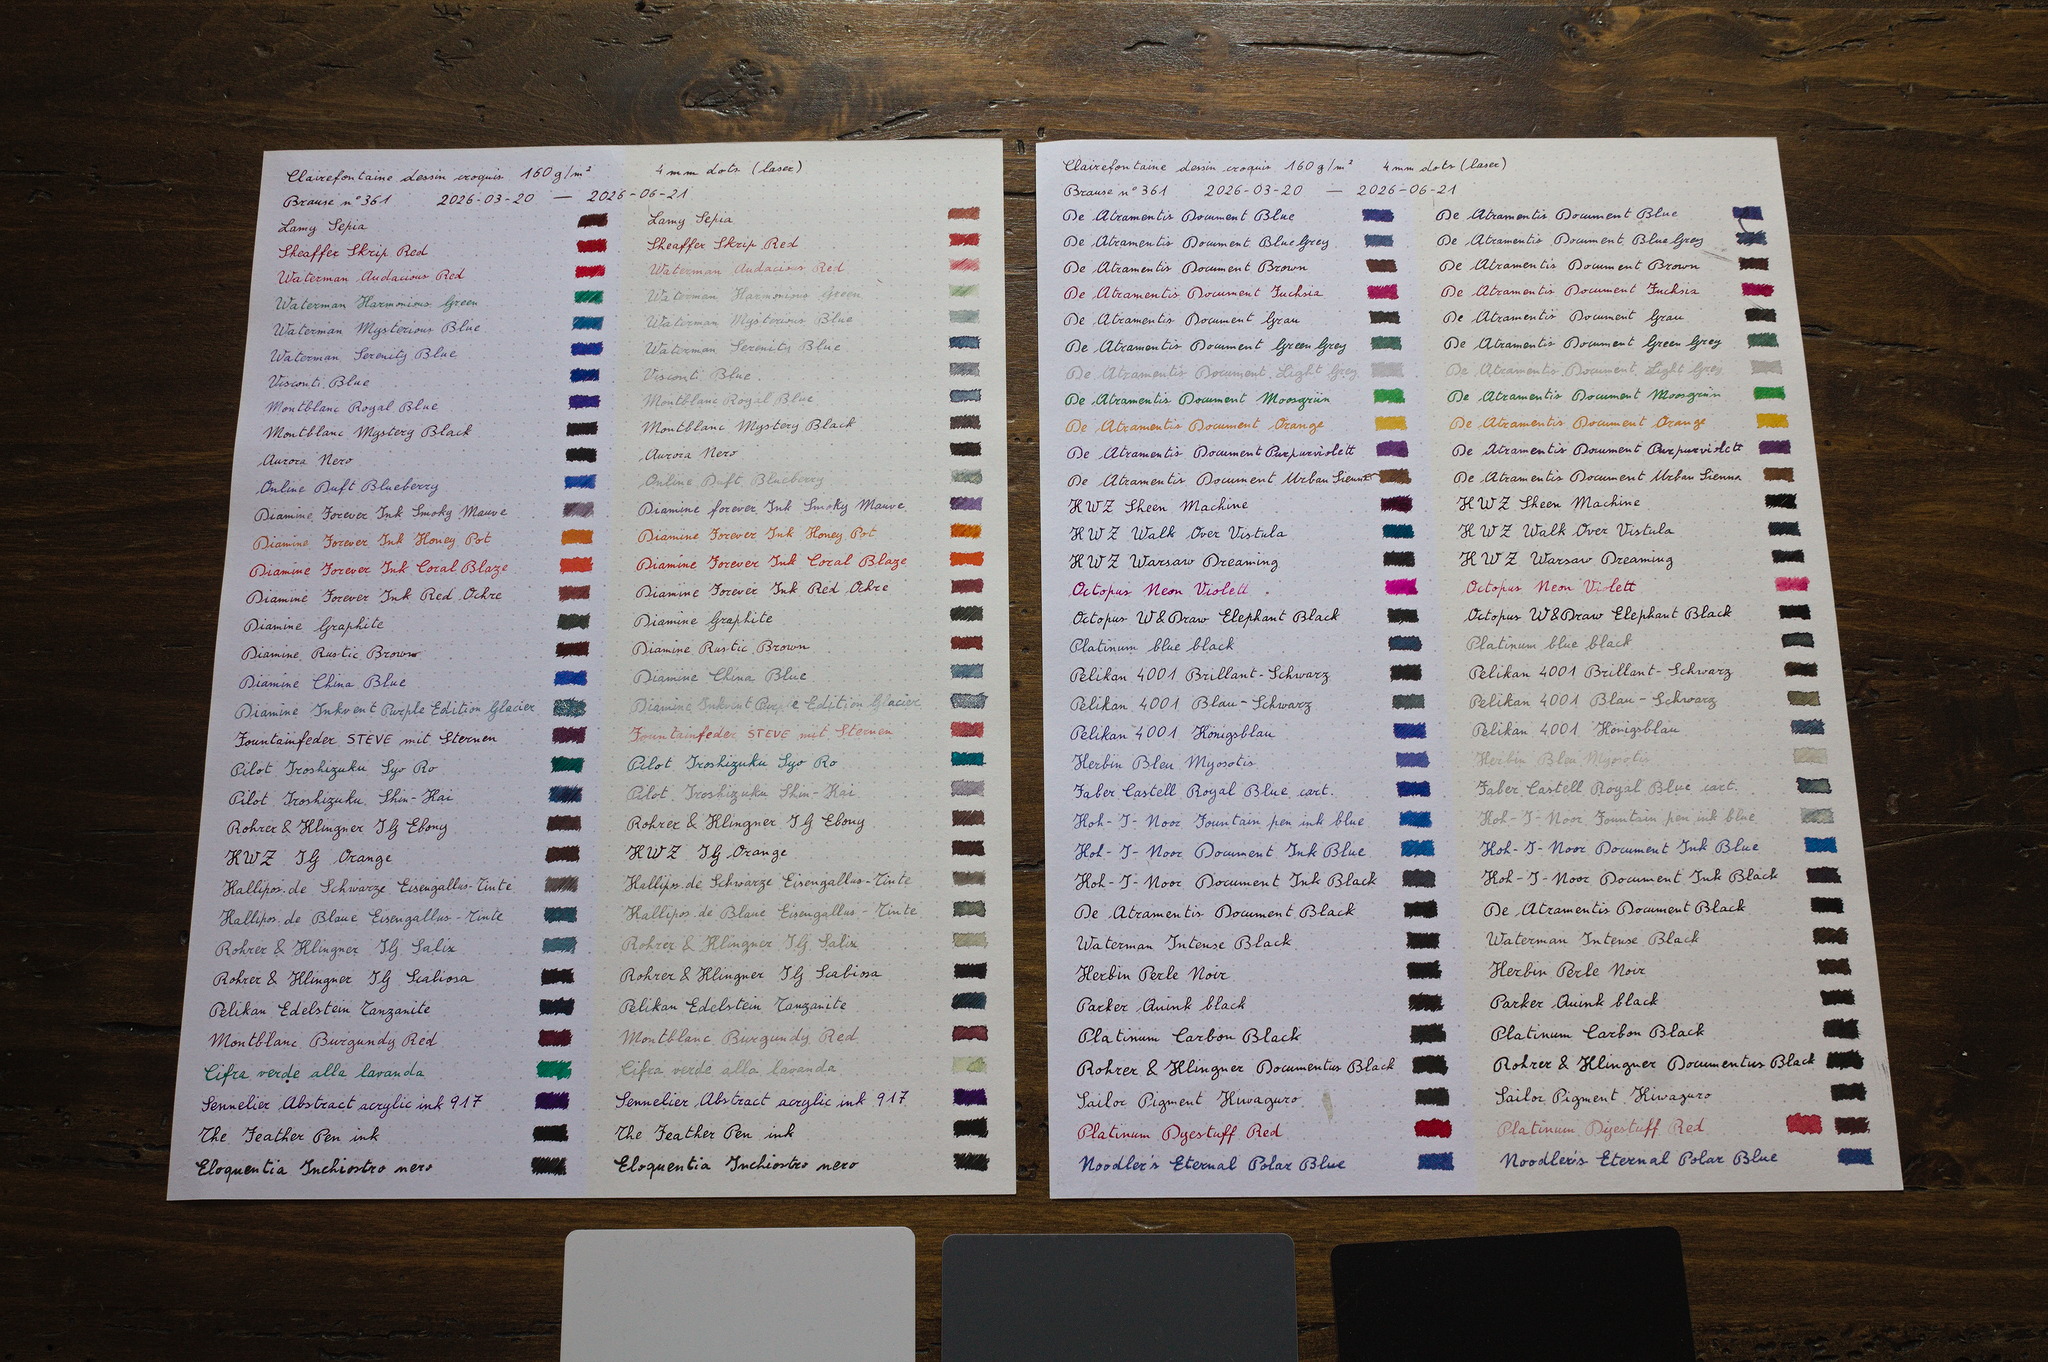 Clairefontaine dessin croquis 160 g/m² 4 mm dots (laser)
Brause n° 361 2026-03-20 — 2026-06-21
Lamy Sepia
Sheaffer Skrip Red
Waterman Audacious Red
Waterman Harmonious Green
Waterman Mysterious Blue
Waterman Serenity Blue
Visconti Blue
Montblanc Royal Blue
Montblanc Mystery Black
Aurora Nero
Online Duft Blueberry
Diamine Forever Ink Smoky Mauve
Diamine Forever Ink Honey Pot
Diamine Forever Ink Coral Blaze
Diamine Forever Ink Red Ochre
Diamine Graphite
Diamine Rustic Brown
Diamine China Blue
Diamine Inkvent Purple Edition Glacier
Fountainfeder STEVE mit Sternen
Pilot Iroshizuku Syo Ro
Pilot Iroshizuku Shin-Kai
Rohrer & Klingner IG Ebony
KWZ IG Orange
Kallipos.de Schwarze Eisengallus-Tinte
Kallipos.de Blaue Eisengallus-Tinte
Rohrer & Klingner IG Salix
Rohrer & Klingner IG Scabiosa
Pelikan Edelstein Tanzanite
Montblanc Burgundy Red
Cifra verde alla lavanda
Sennelier Abstract acrylic ink 917
The Feather Pen ink
Eloquentia Inchiostro nero
Lamy Sepia
Sheaffer Skrip Red
Waterman Audacious Red
Waterman Harmonious Green
Waterman Mysterious Blue
Waterman Serenity Blue
Visconti Blue
Montblanc Royal Blue
Montblanc Mystery Black
Aurora Nero
Online Duft Blueberry
Diamine forever Ink Smoky Mauve
Diamine Forever Ink Honey Pot
Diamine Forever Ink Coral Blaze
Diamine Forever Ink Red Ochre
Diamine Graphite
Diamine Rustic Brown
Diamine China Blue
Diamine Inkvent Purple Edition Glacier
Fountainfeder STEVE mit Sternen
Pilot Iroshizuku Syo Ro
Pilot Iroshizuku Shin-Kai
Rohrer & Klingner IG Ebony
KWZ IG Orange
Kallipos.de Schwarze Eisengallus-Tinte
Kallipos.de Blaue Eisengallus-Tinte
Rohrer & Klingner IG Salix
Rohrer & Klingner IG Scabiosa
Pelikan Edelstein Tanzanite
Montblanc Burgundy Red
Cifra verde alla lavanda
Sennelier Abstract acrylic ink 917
The Feather Pen ink
Eloquentia Inchiostro nero
Clairefontaine dessin croquis 160 g/m² 4 mm dots (laser)
Brause n° 361 2026-03-20 — 2026-06-21
De Atramentis Document Blue
De Atramentis Document Blue Grey
De Atramentis Document Brown
De Atramentis Document Fuchsia
De Atramentis Document Grau
De Atramentis Document Green Grey
De Atramentis Document Light Grey
De Atramentis Document Moosgrün
De Atramentis Document Orange
De Atramentis Document Purpurviolett
De Atramentis Document Urban Sienna
KWZ Sheen Machine
KWZ Walk Over Vistula
KWZ Warsaw Dreaming
Octopus Neon Violett
Octopus W&Draw Elephant Black
Platinum blue black
Pelikan 4001 Brillant-Schwarz
Pelikan 4001 Blau-Schwarz
Pelikan 4001 Königsblau
Herbin Bleu Myosotis
Faber Castell Royal Blue cart.
Koh-I-Noor Fountain pen ink blue
Koh-I-Noor Document Ink Blue
Koh-I-Noor Document Ink Black
De Atramentis Document Black
Waterman Intense Black
Herbin Perle Noir
Parker Quink black
Platinum Carbon Black
Rohrer & Klingner Documentus Black
Sailor Pigment Kiwaguro
Platinum Dyestuff Red
Noodler's Eternal Polar Blue
De Atramentis Document Blue
De Atramentis Document Blue Grey
De Atramentis Document Brown
De Atramentis Document Fuchsia
De Atramentis Document Grau
De Atramentis Document Green Grey
De Atramentis Document Light Grey
De Atramentis Document Moosgrün
De Atramentis Document Orange
De Atramentis Document Purpurviolett
De Atramentis Document Urban Sienna
KWZ Sheen Machine
KWZ Walk Over Vistula
KWZ Warsaw Dreaming
Octopus Neon Violett
Octopus W&Draw Elephant Black
Platinum blue black
Pelikan 4001 Brillant-Schwarz
Pelikan 4001 Blau-Schwarz
Pelikan 4001 Königsblau
Herbin Bleu Myosotis
Faber Castell Royal Blue cart.
Koh-I-Noor Fountain pen ink blue
Koh-I-Noor Document Ink Blue
Koh-I-Noor Document Ink Black
De Atramentis Document Black
Waterman Intense Black
Herbin Perle Noir
Parker Quink black
Platinum Carbon Black
Rohrer & Klingner Documentus Black
Sailor Pigment Kiwaguro
Platinum Dyestuff Red
Noodler's Eternal Polar Blue